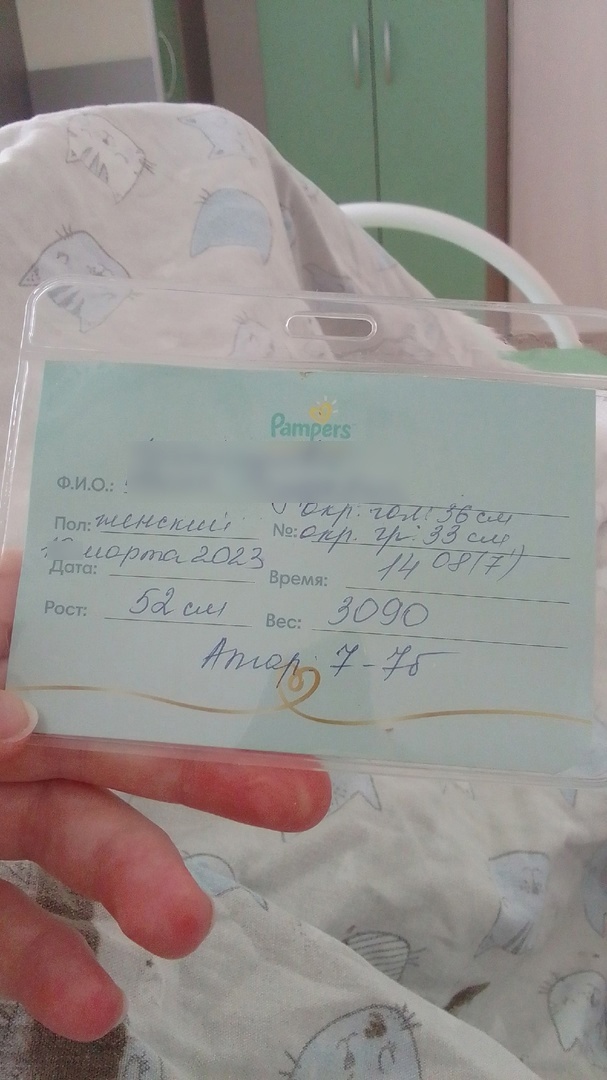 Pampers
Ф.И.О.:
окр. гол. 36 см
Пол: женский №: окр. гр. 33 см
марта 2023
Дата: Время: 14 08 (7)
Рост: 52 см Вес: 3090
Апгар 7-7б